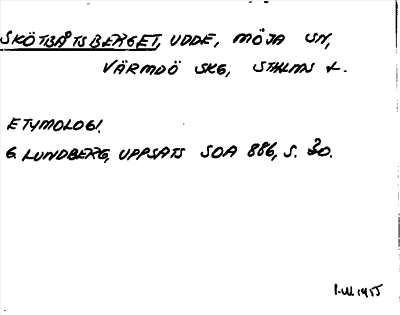 SKÖTBÅTSBERGET, UDDE, MÖJA SN,
VÄRMDÖ SKG, STHLMS L.
ETYMOLOGI.
G. LUNDBERG, UPPSATS SOA 886, S. 20.
1955